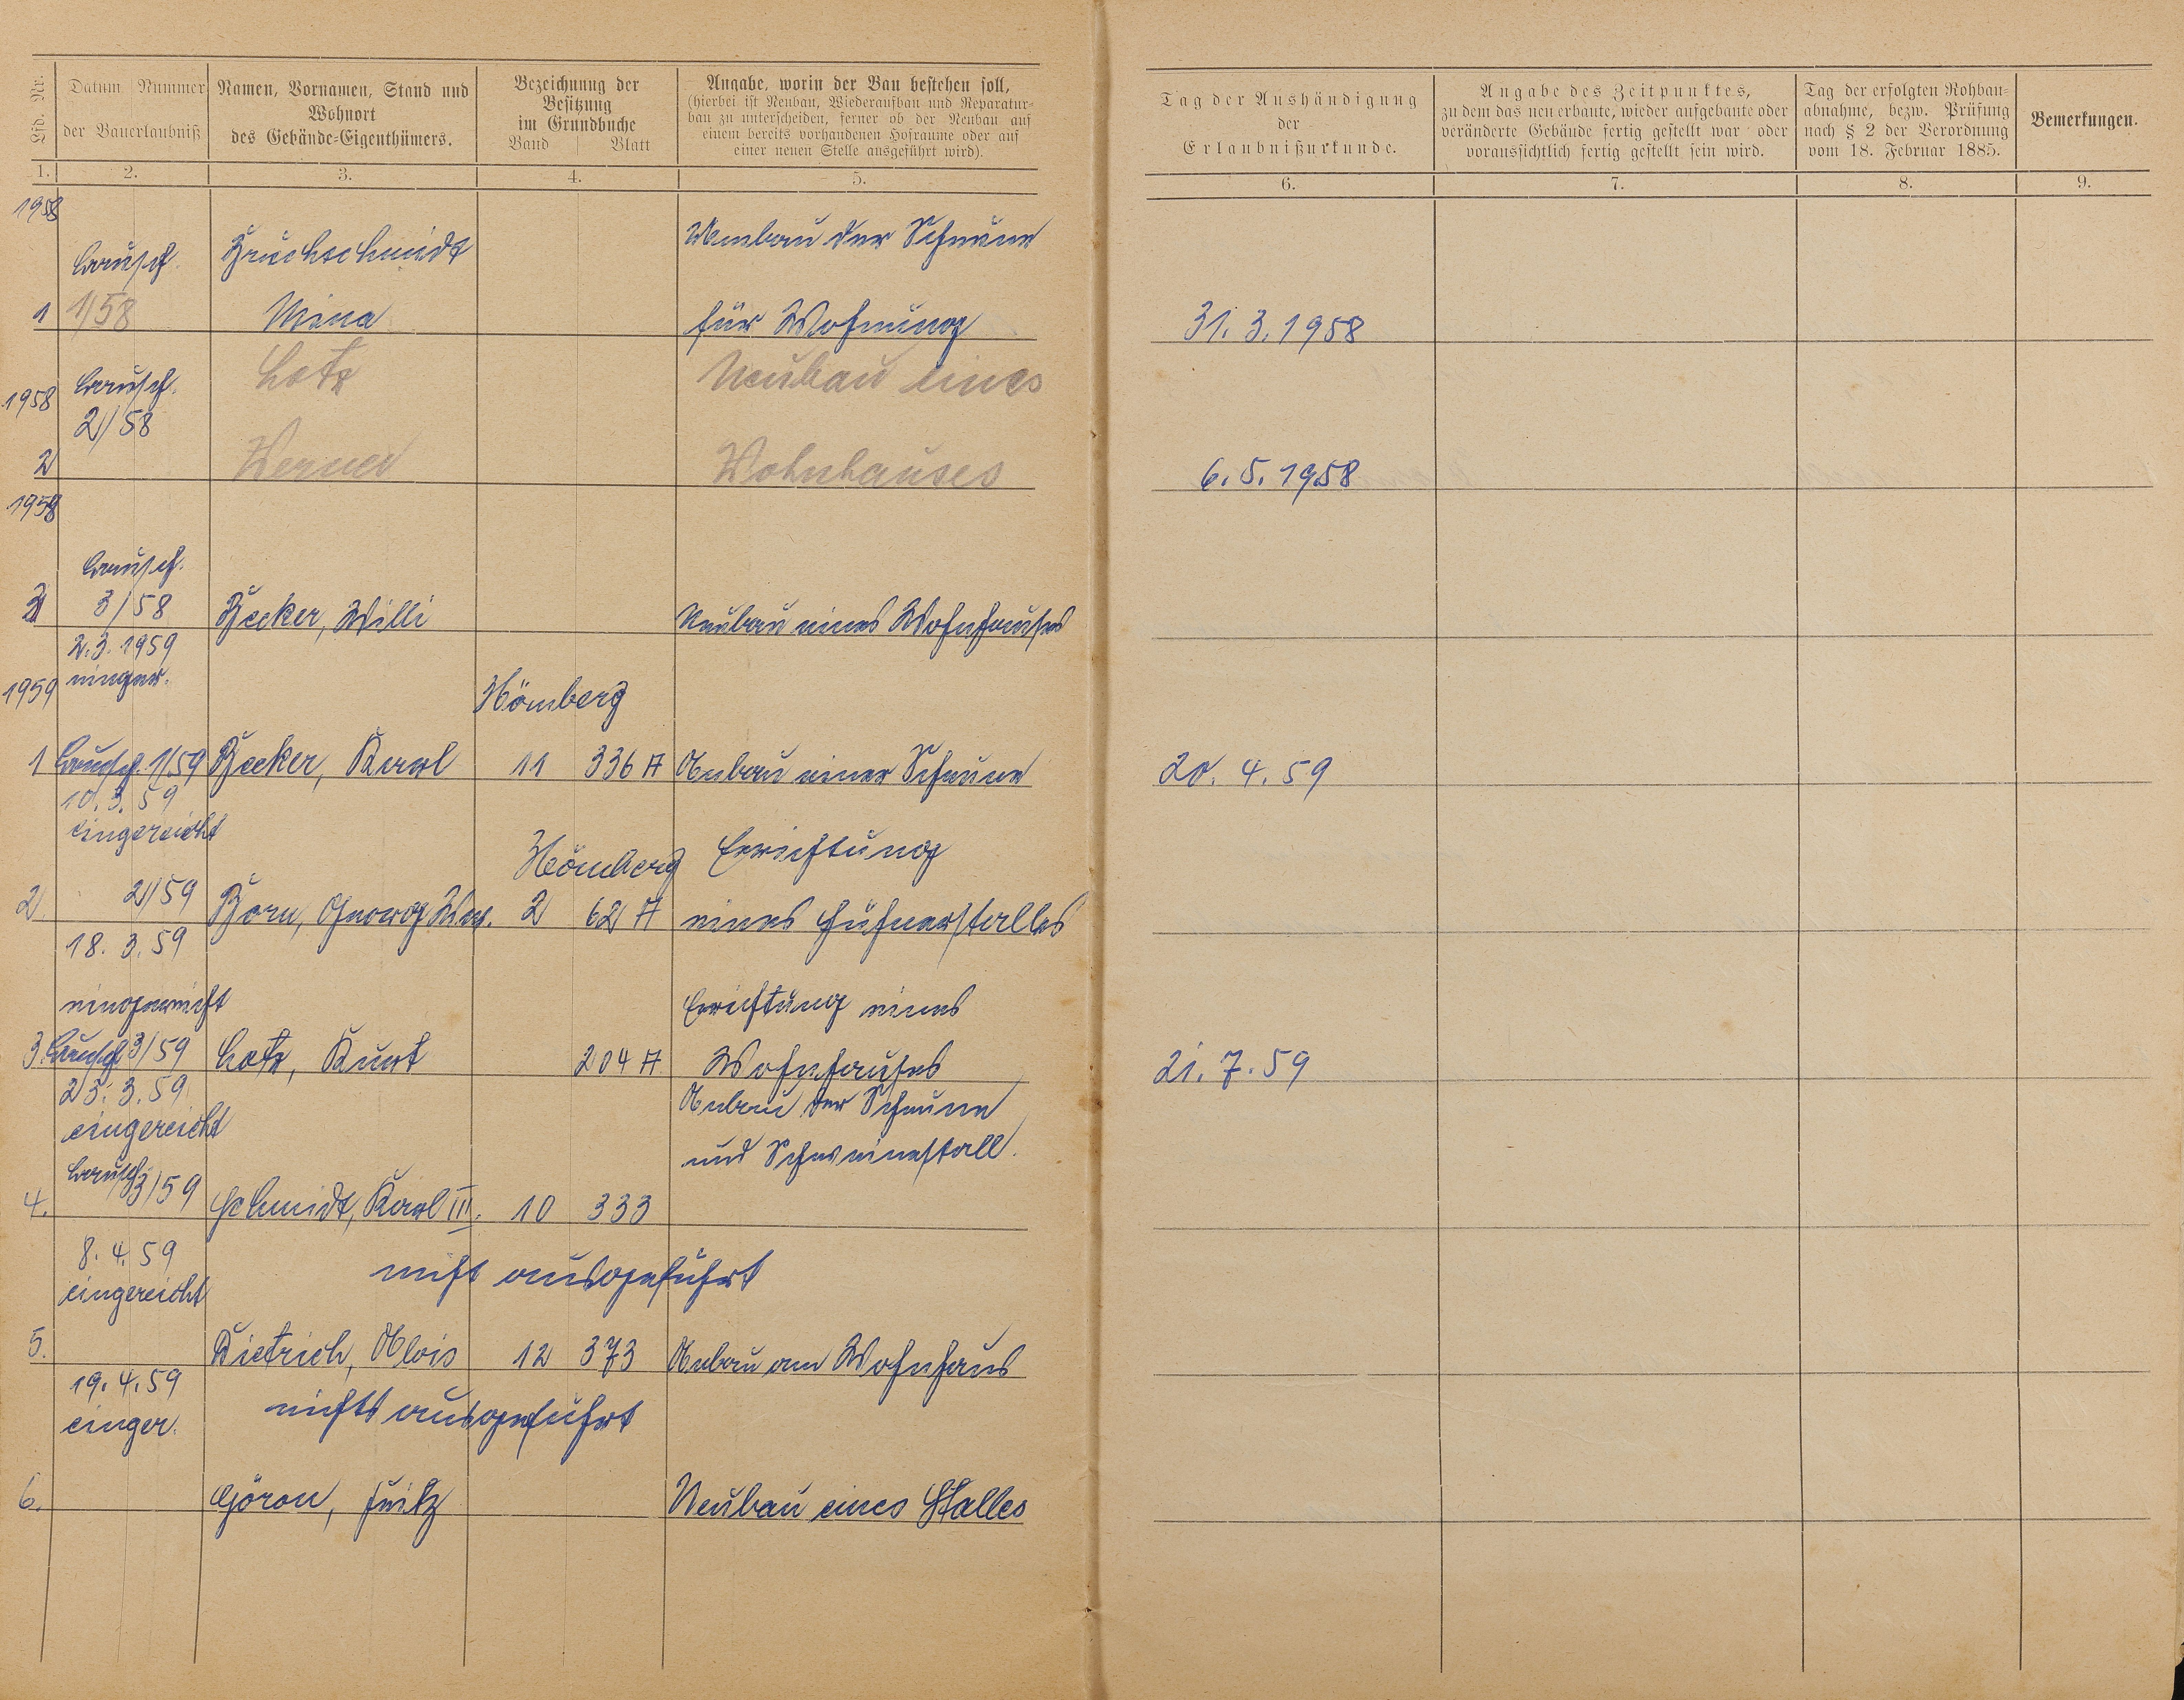 Lfd. Nr.
Datum | Nummer
der Bauerlaubniß
Namen, Vornamen, Stand und
Wohnort
des Gebäude-Eigenthümers.
Bezeichnung der
Besitzung
im Grundbuche
Band Blatt
Angabe, worin der Bau bestehen soll,
(hierbei ist Neubau, Wiederaufbau und Reparatur-
bau zu unterscheiden, ferner ob der Neubau auf
einem bereits vorhandenen Hofraume oder auf
einer neuen Stelle ausgeführt wird).
Tag der Aushändigung
der
Erlaubnißurkunde.
Angabe des Zeitpunktes,
zu dem das neu erbaute, wieder aufgebaute oder
veränderte Gebäude fertig gestellt war oder
voraussichtlich fertig gestellt sein wird.
Tag der erfolgten Rohbau-
abnahme, bezw. Prüfung
nach § 2 der Verordnung
vom 18. Februar 1885.
Bemerkungen.
1. 2. 3. 4. 5. 6. 7. 8. 9.
1958
Bausch. Bruchschmidt Umbau der Scheune
1 1/58 Mina für Wohnung 31.3.1958
1958 Bausch. Lotz Neubau eines
2/58
2 Werner Wohnhauses 6.5.1958
1958
Bausch.
3 3/58 Becker, Willi Neubau eines Wohnhauses
2.3.1959
1959 einger. Hömberg
1 Bausch. 1/59 Becker, Karl 11 336 A Anbau einer Scheune 20.4.59
10.3.59
eingereicht
Hömberg Errichtung
2 2/59 Born, Georg Ww. 2 62 A eines Hühnerstalles
18.3.59
eingereicht Errichtung eines
3. Bausch 3/59 Lotz, Kurt 204 A Wohnhauses 21.7.59
23.3.59 Anbau der Scheune
eingereicht
und Schweinestall.
Bausch
4. 3/59 Schmidt, Karl III. 10 333
8.4.59
eingereicht nicht ausgeführt
5. Dietrich, Alois 12 373 Anbau am Wohnhaus
19.4.59
einger. nichts ausgeführt
6. Fritz Neubau eines Stalles